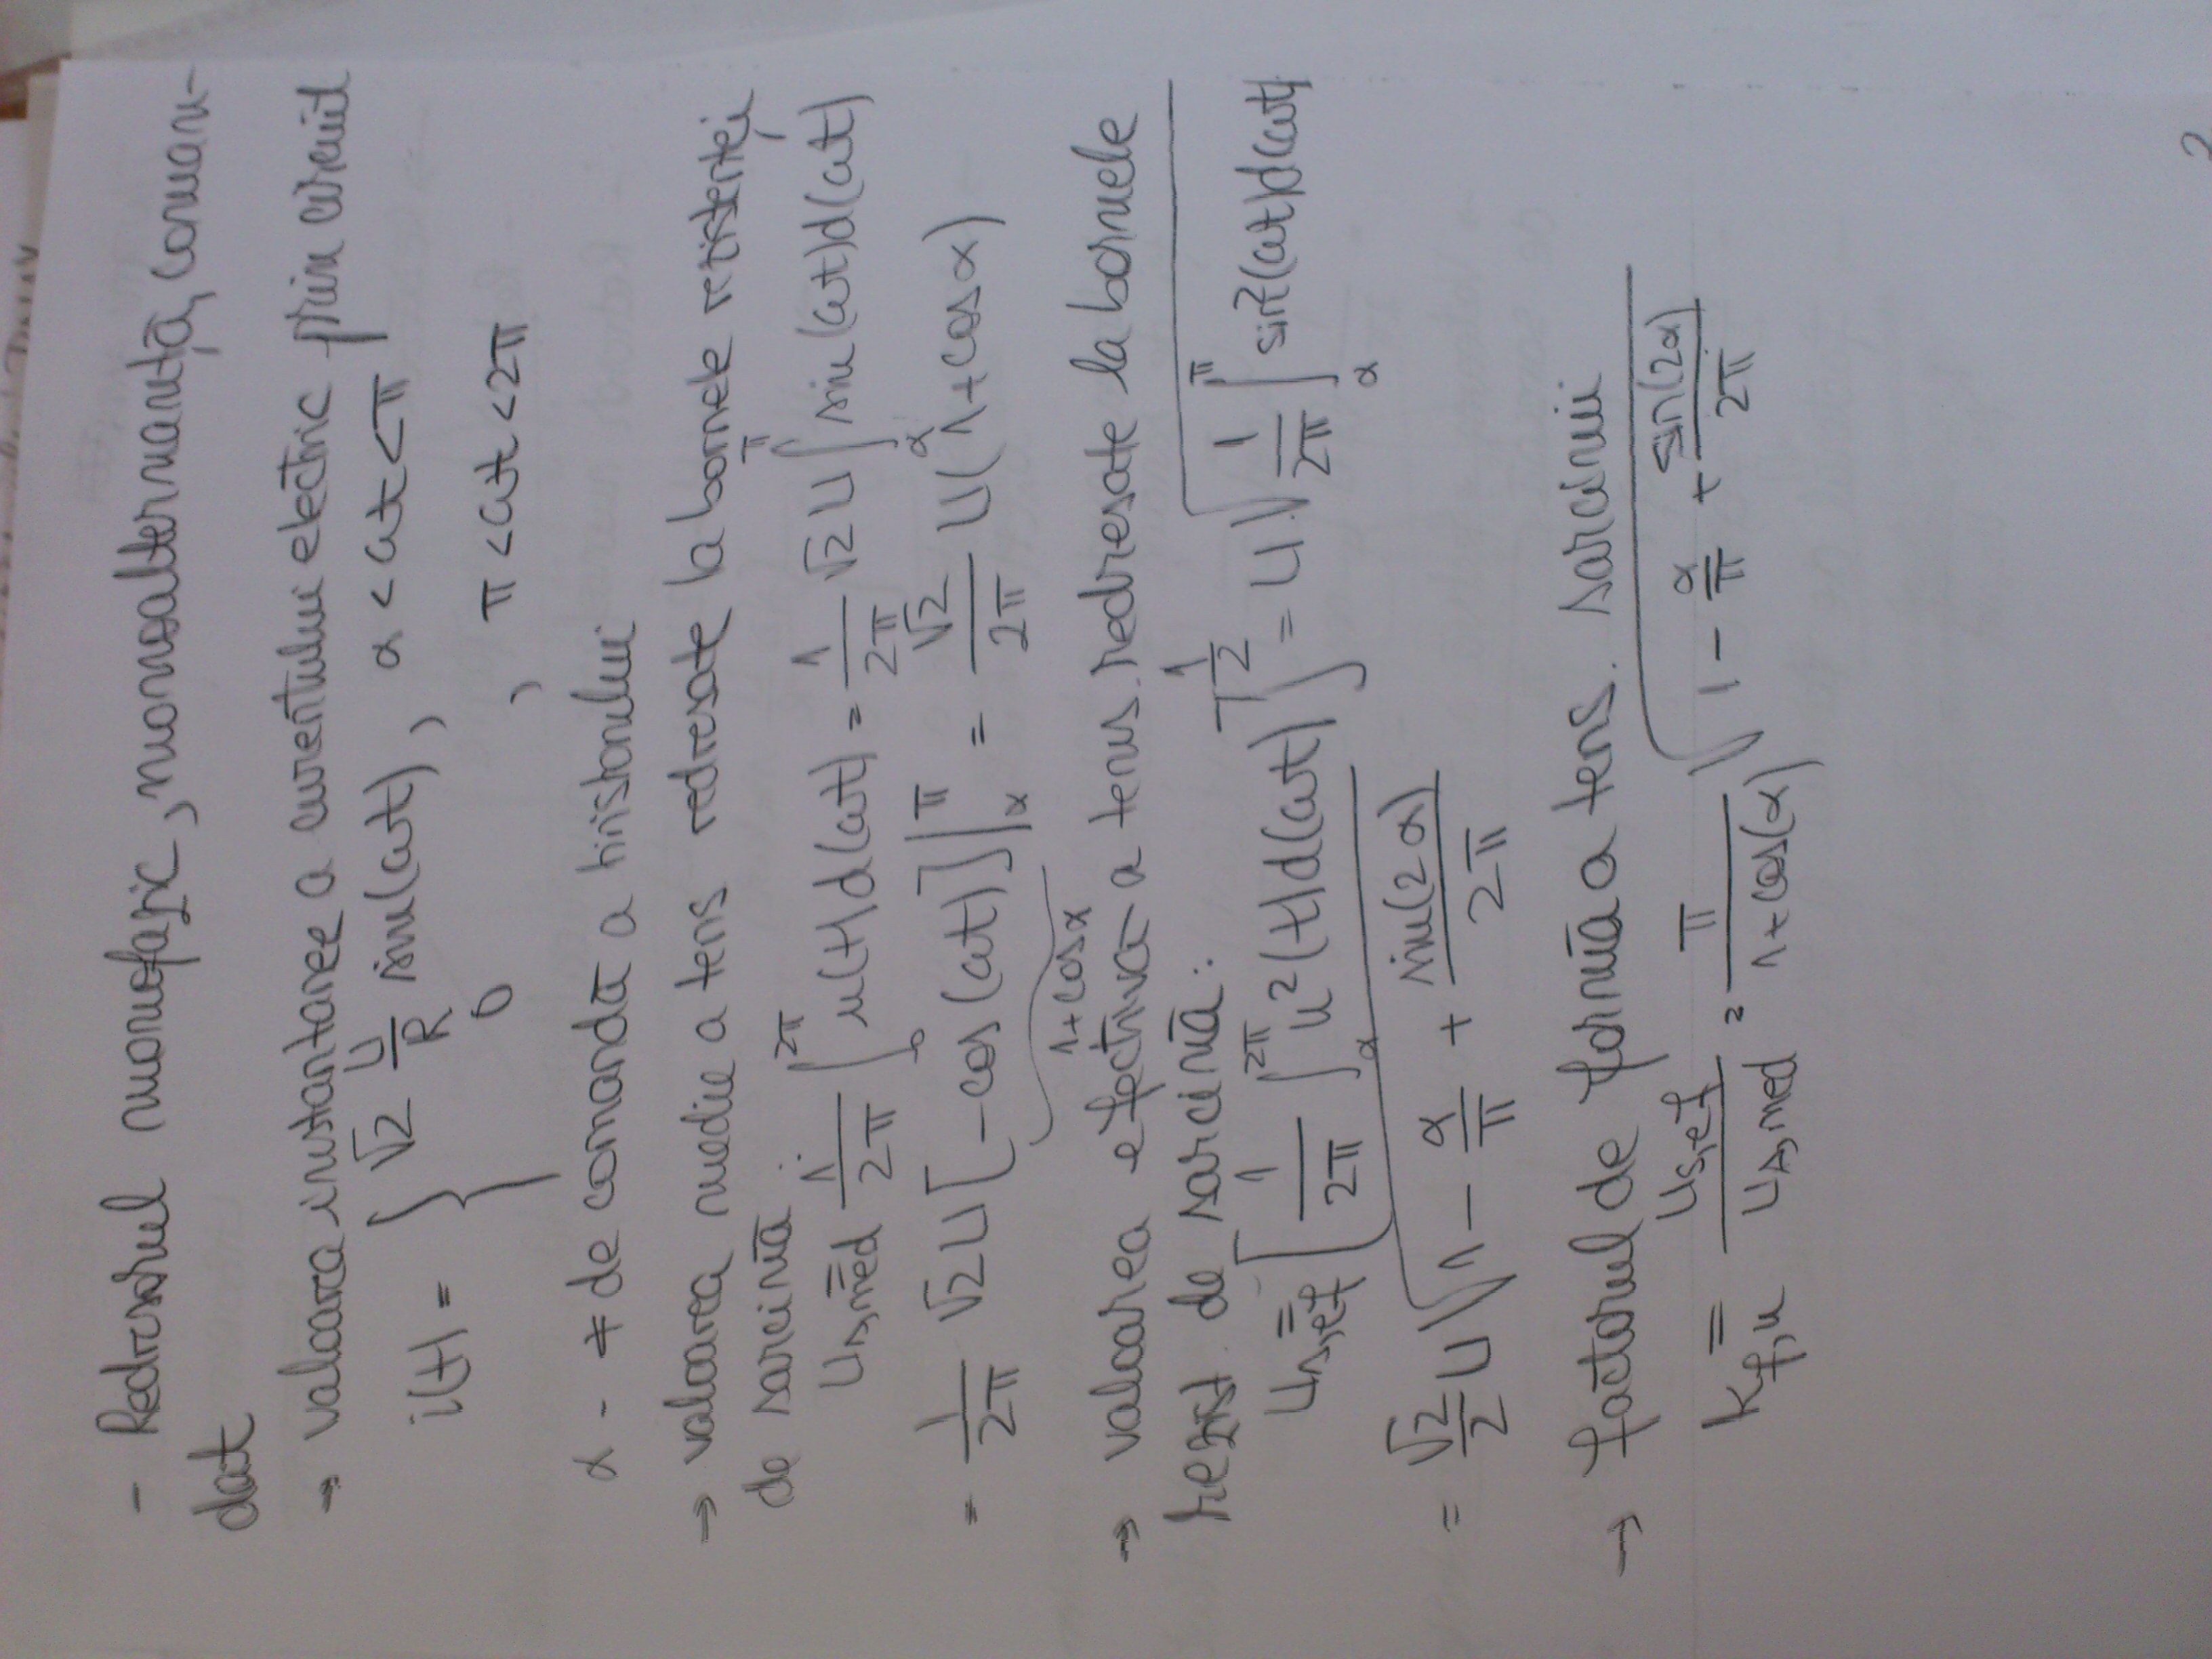 - Redresorul monofazic, monoalternanță, coman-
dat
→ valoarea instantanee a curentului electric prin circuit
i(t) = { √2 U/R sin(ωt), α < ωt < π
0 , π < ωt < 2π
α - ∢ de comandă a tiristorului
→ valoarea medie a tens redresate la bornele rezistenței
de sarcină:
Us,med = 1/2π ∫₀^2π u(t)d(ωt) = 1/2π √2 U ∫α^π sin(ωt)d(ωt)
= 1/2π √2 U [-cos(ωt)]|α^π = √2/2π U(1+cosα)
1+cosα
→ valoarea efectivă a tens. redresate la bornele
rezist. de sarcină:
Us,ef = [1/2π ∫α^2π u²(t)d(ωt)]^1/2 = U √(1/2π ∫α^π sin²(ωt)d(ωt)
= √2/2 U √(1 - α/π + sin(2α)/2π)
→ factorul de formă a tens. sarcinii
Kf,u = Us,ef/Us,med = π/(1+cos(α)) √(1 - α/π + sin(2α)/2π)
2